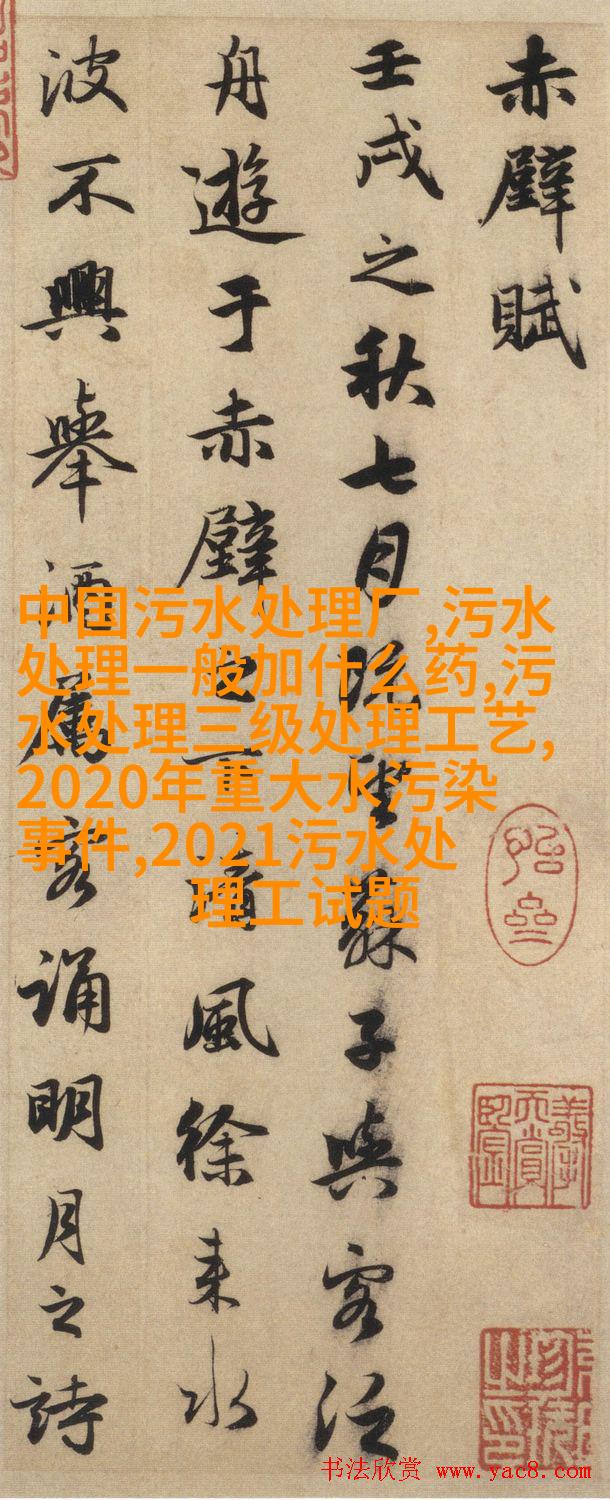 赤壁賦
壬戌之秋七月既望蘇子與客泛
舟遊于赤壁之下清風徐来水
波不興舉酒屬客誦明月之詩
中国污水处理厂,污水
处理一般加什么药,污
水处理三级处理工艺,
2020年重大水污染
事件,2021污水处
理工试题
书法欣赏 www.yac8.com